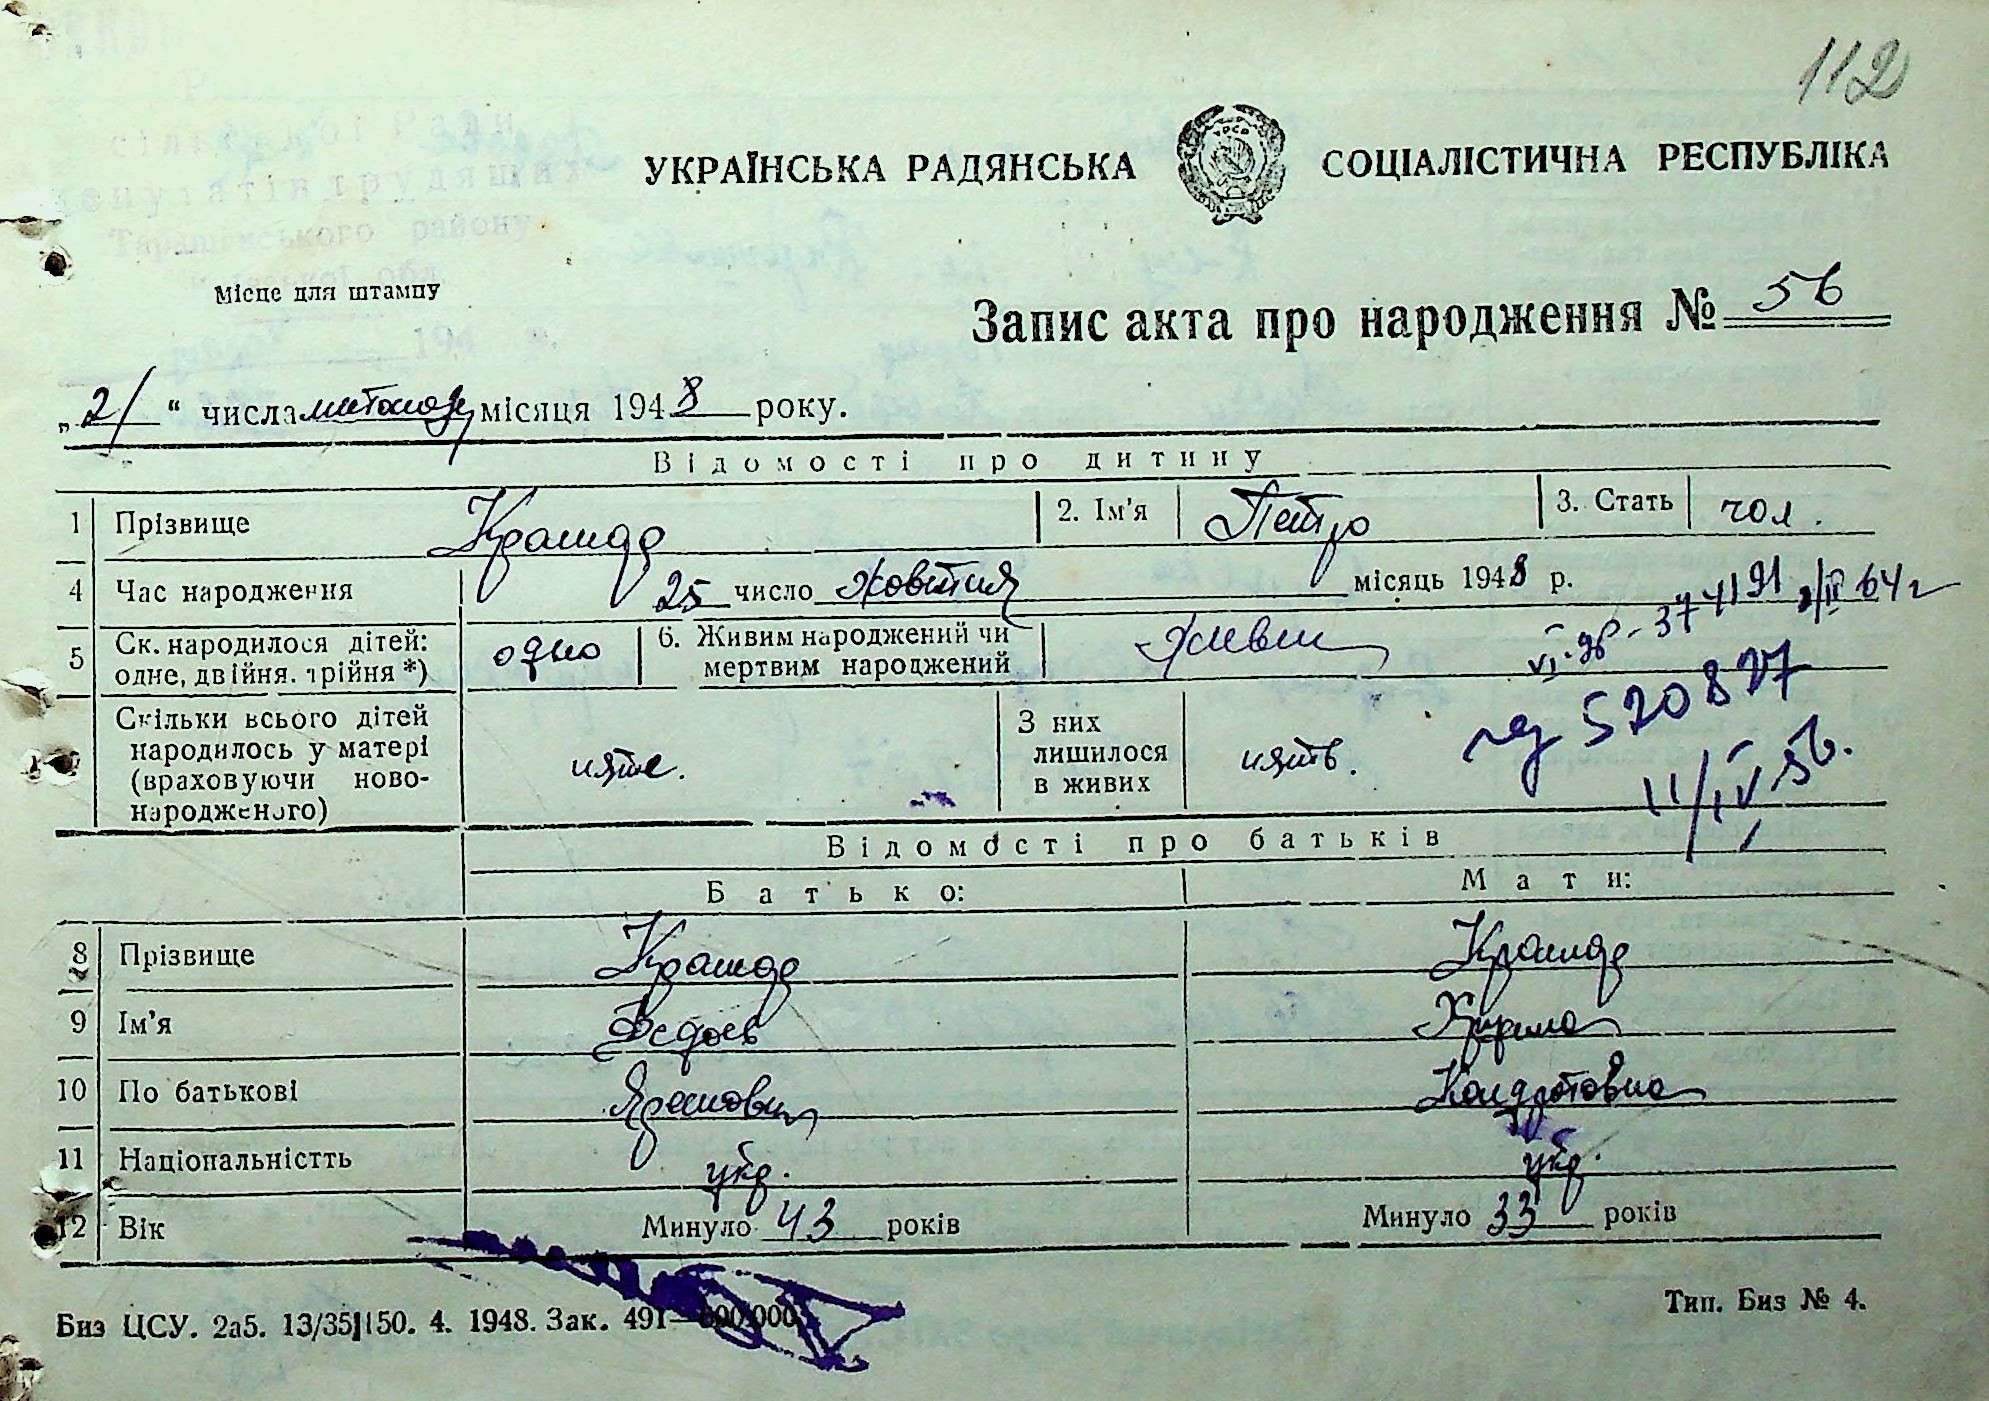 112
УКРАЇНСЬКА РАДЯНСЬКА СОЦІАЛІСТИЧНА РЕСПУБЛІКА
сільської Ради
депутатів трудящих
Таращанського району
Київської обл.
Місце для штампу
194 р.
Запис акта про народження № 56
„21“ числа листопада місяця 1948 року.
Відомості про дитину
1 Прізвище 2. Ім'я Петро 3. Стать чол.
4 Час народження 25 число жовтня місяць 1948 р.
5 Ск. народилося дітей: одно 6. Живим народжений чи живим
одне, двійня, трійня *) мертвим народжений
VI-яб-374191 64 г
Скільки всього дітей З них
народилось у матері лишилося
(враховуючи ново- пяте. в живих пять.
народженого)
520827
11/IV 56.
Відомості про батьків
Батько: Мати:
8 Прізвище
9 Ім'я Федось
10 По батькові Кондратовна
11 Національністть укр. укр.
12 Вік Минуло 43 років Минуло 33 років
Биз ЦСУ. 2а5. 13/35 150. 4. 1948. Зак. 491—
Тип. Биз № 4.